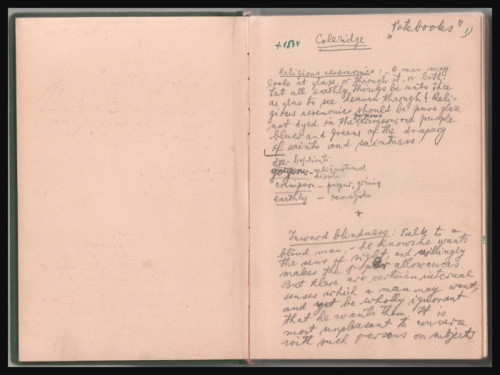 "Notebooks" 1)
+1834 Coleridge
Religious ceremonies: A man may
look at glass, or through it, or both.
Let all earthly things be unto thee
as glas to see heaven through! Reli-
gious ceremonies should be pure glass
not dyed in the gorgeous crimsons and purple
blues and greens of the drapery
of saints and saintesses!
gorgeous -
crimson -
earthly -
Inward blindness: Talk to a
blind man - he knows he wants
the sens of sight and willingly
makes the proper allowances
But there are certain internal
senses which a man may want,
and yet be wholly ignorant
that he wants them. It is
most unpleasant to converse
with such persons on subjects